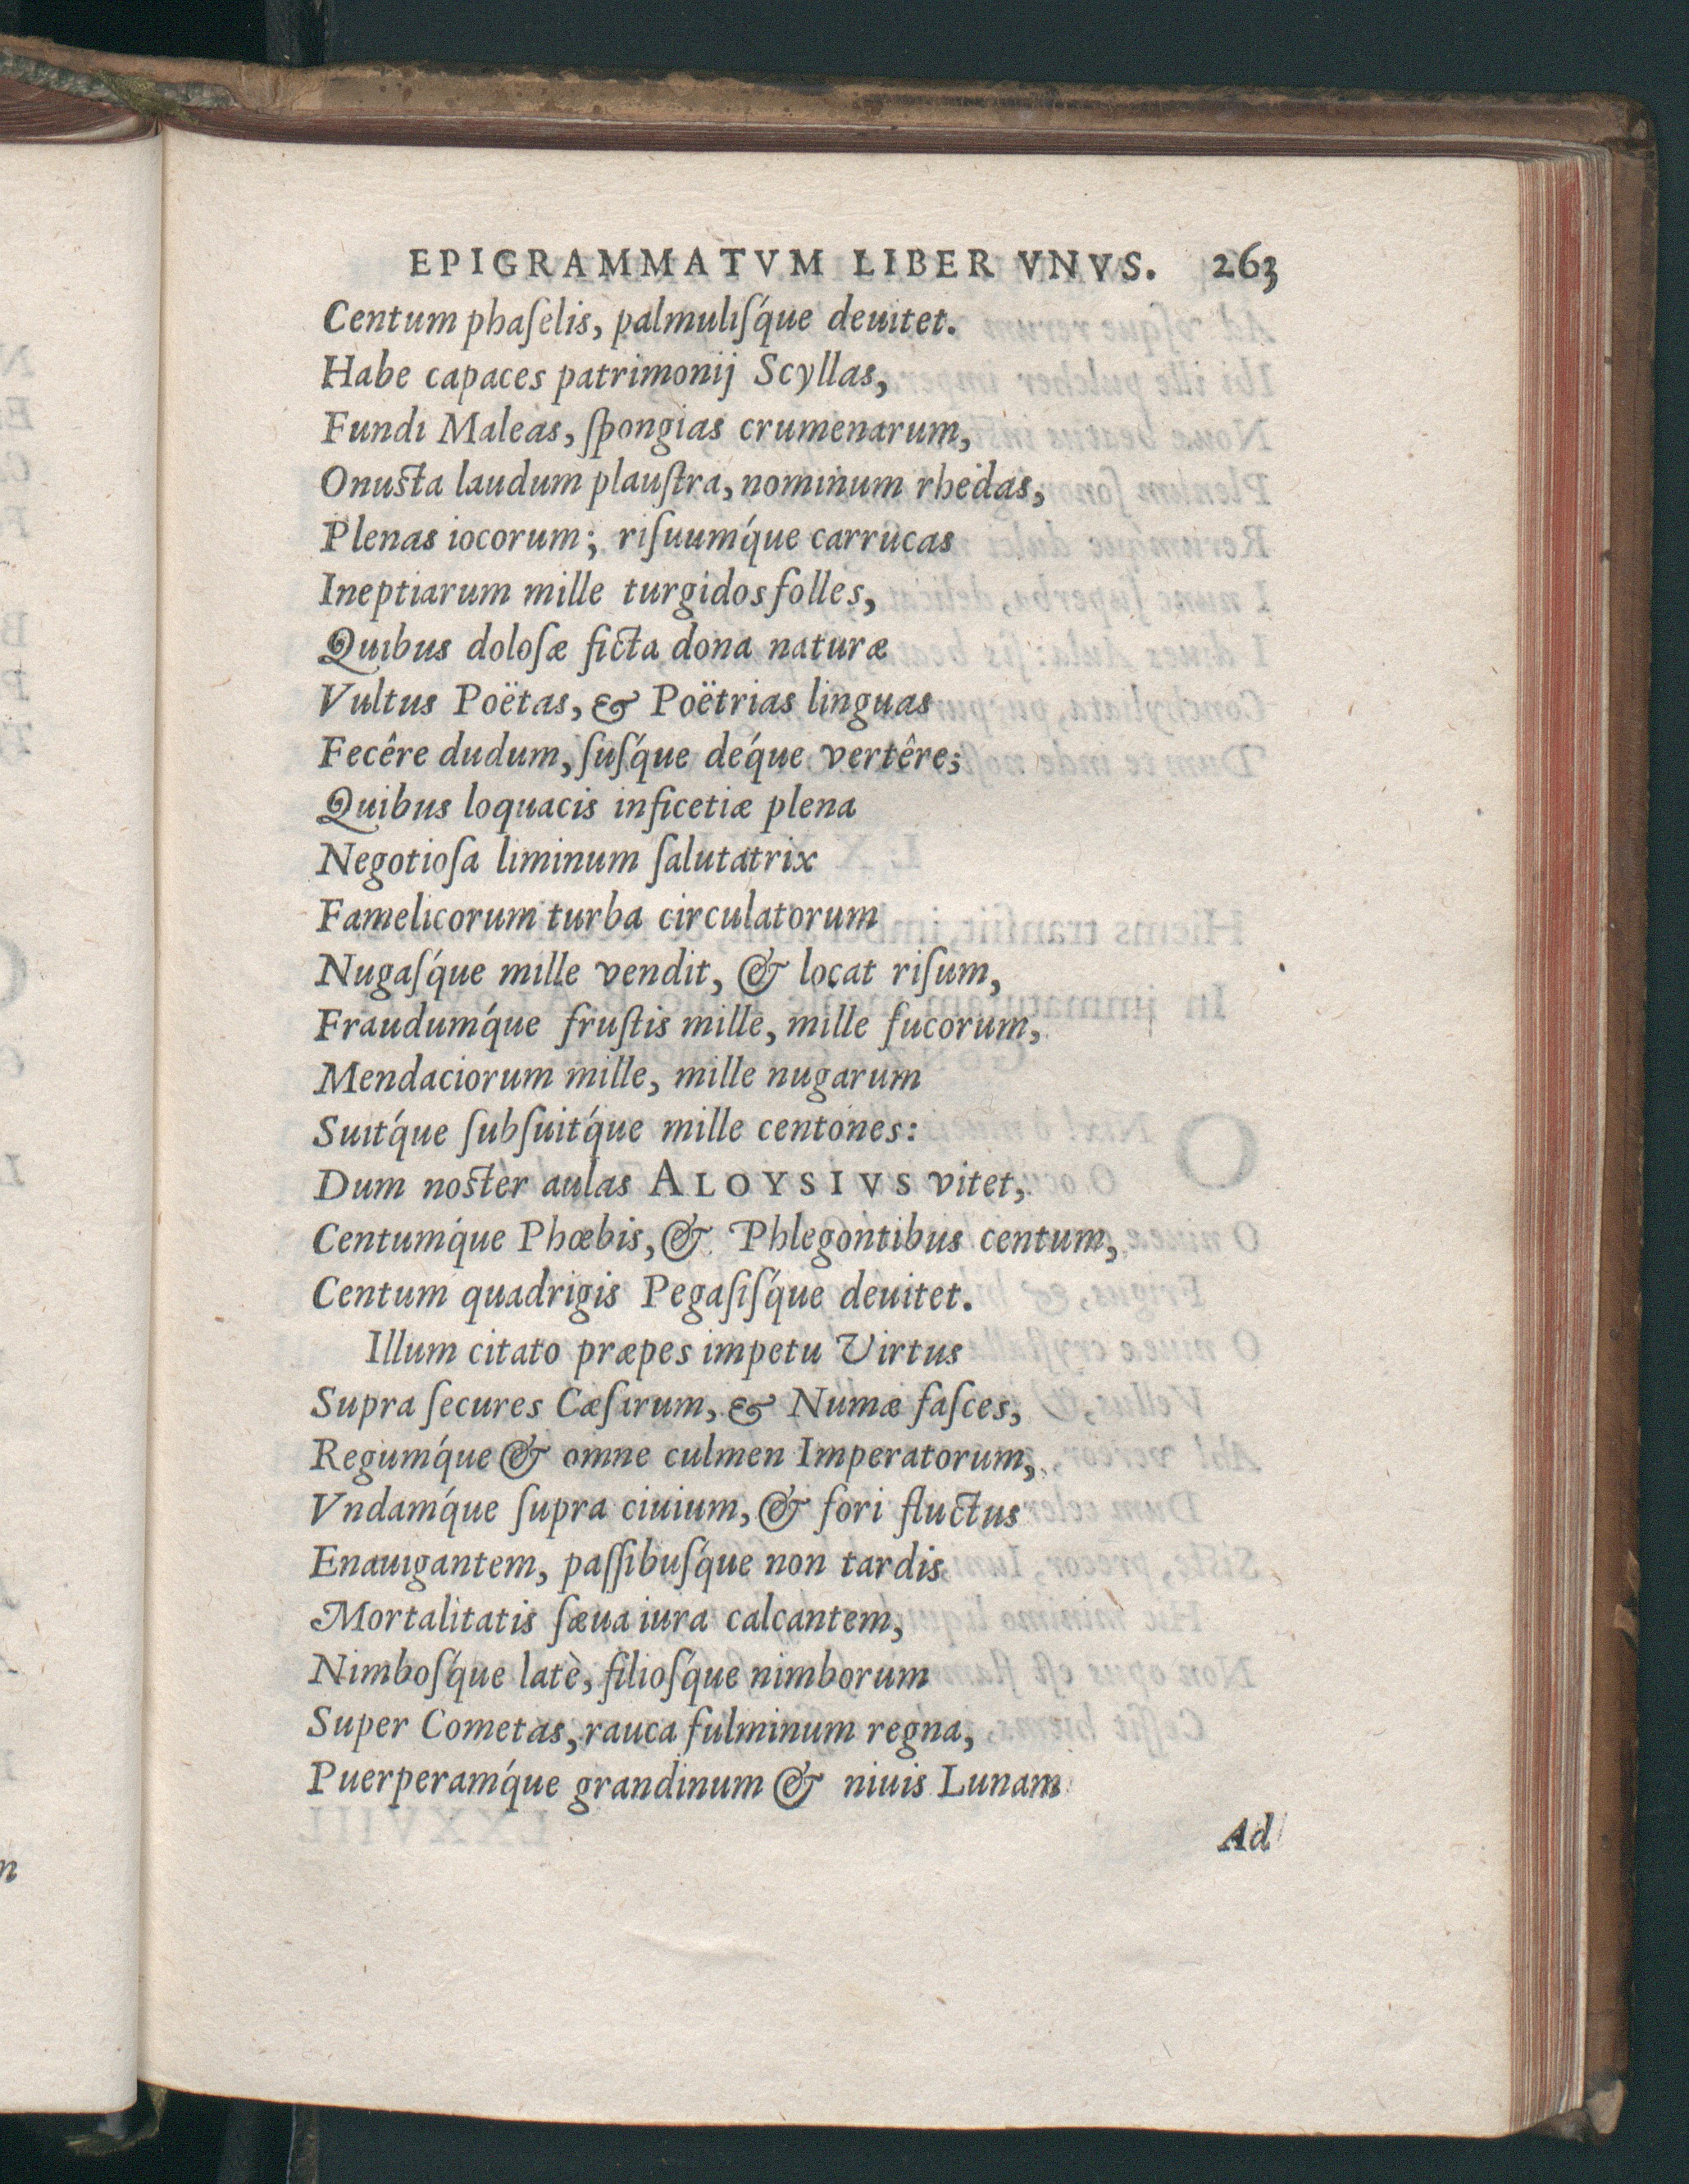 EPIGRAMMATVM LIBER VNVS. 263
Centum phaſelis, palmuliſq́ue deuitet.
Habe capaces patrimonij Scyllas,
Fundi Maleas, ſpongias crumenarum,
Onusta laudum plauſtra, nominum rhedas,
Plenas iocorum; riſuumq́ue carrucas
Ineptiarum mille turgidos folles,
Quibus doloſæ ficta dona naturæ
Vultus Poëtas, & Poëtrias linguas
Fecêre dudum, ſuſq́ue deq́ue vertêre;
Quibus loquacis inficetiæ plena
Negotioſa liminum ſalutatrix
Famelicorum turba circulatorum
Nugaſq́ue mille vendit, & locat riſum,
Fraudumq́ue fruſtis mille, mille fucorum,
Mendaciorum mille, mille nugarum
Suitq́ue ſubſuitq́ue mille centones:
Dum noster aulas ALOYSIVS vitet,
Centumq́ue Phœbis, & Phlegontibus centum,
Centum quadrigis Pegaſiſq́ue deuitet.
Illum citato præpes impetu Virtus
Supra ſecures Cæſarum, & Numæ faſces,
Regumq́ue & omne culmen Imperatorum,
Vndamq́ue ſupra ciuium, & fori fluctus
Enauigantem, paſſibuſq́ue non tardis
Mortalitatis ſæua iura calcantem,
Nimboſq́ue latè, filioſq́ue nimborum
Super Cometas, rauca fulminum regna,
Puerperamq́ue grandinum & niuis Lunam
Ad